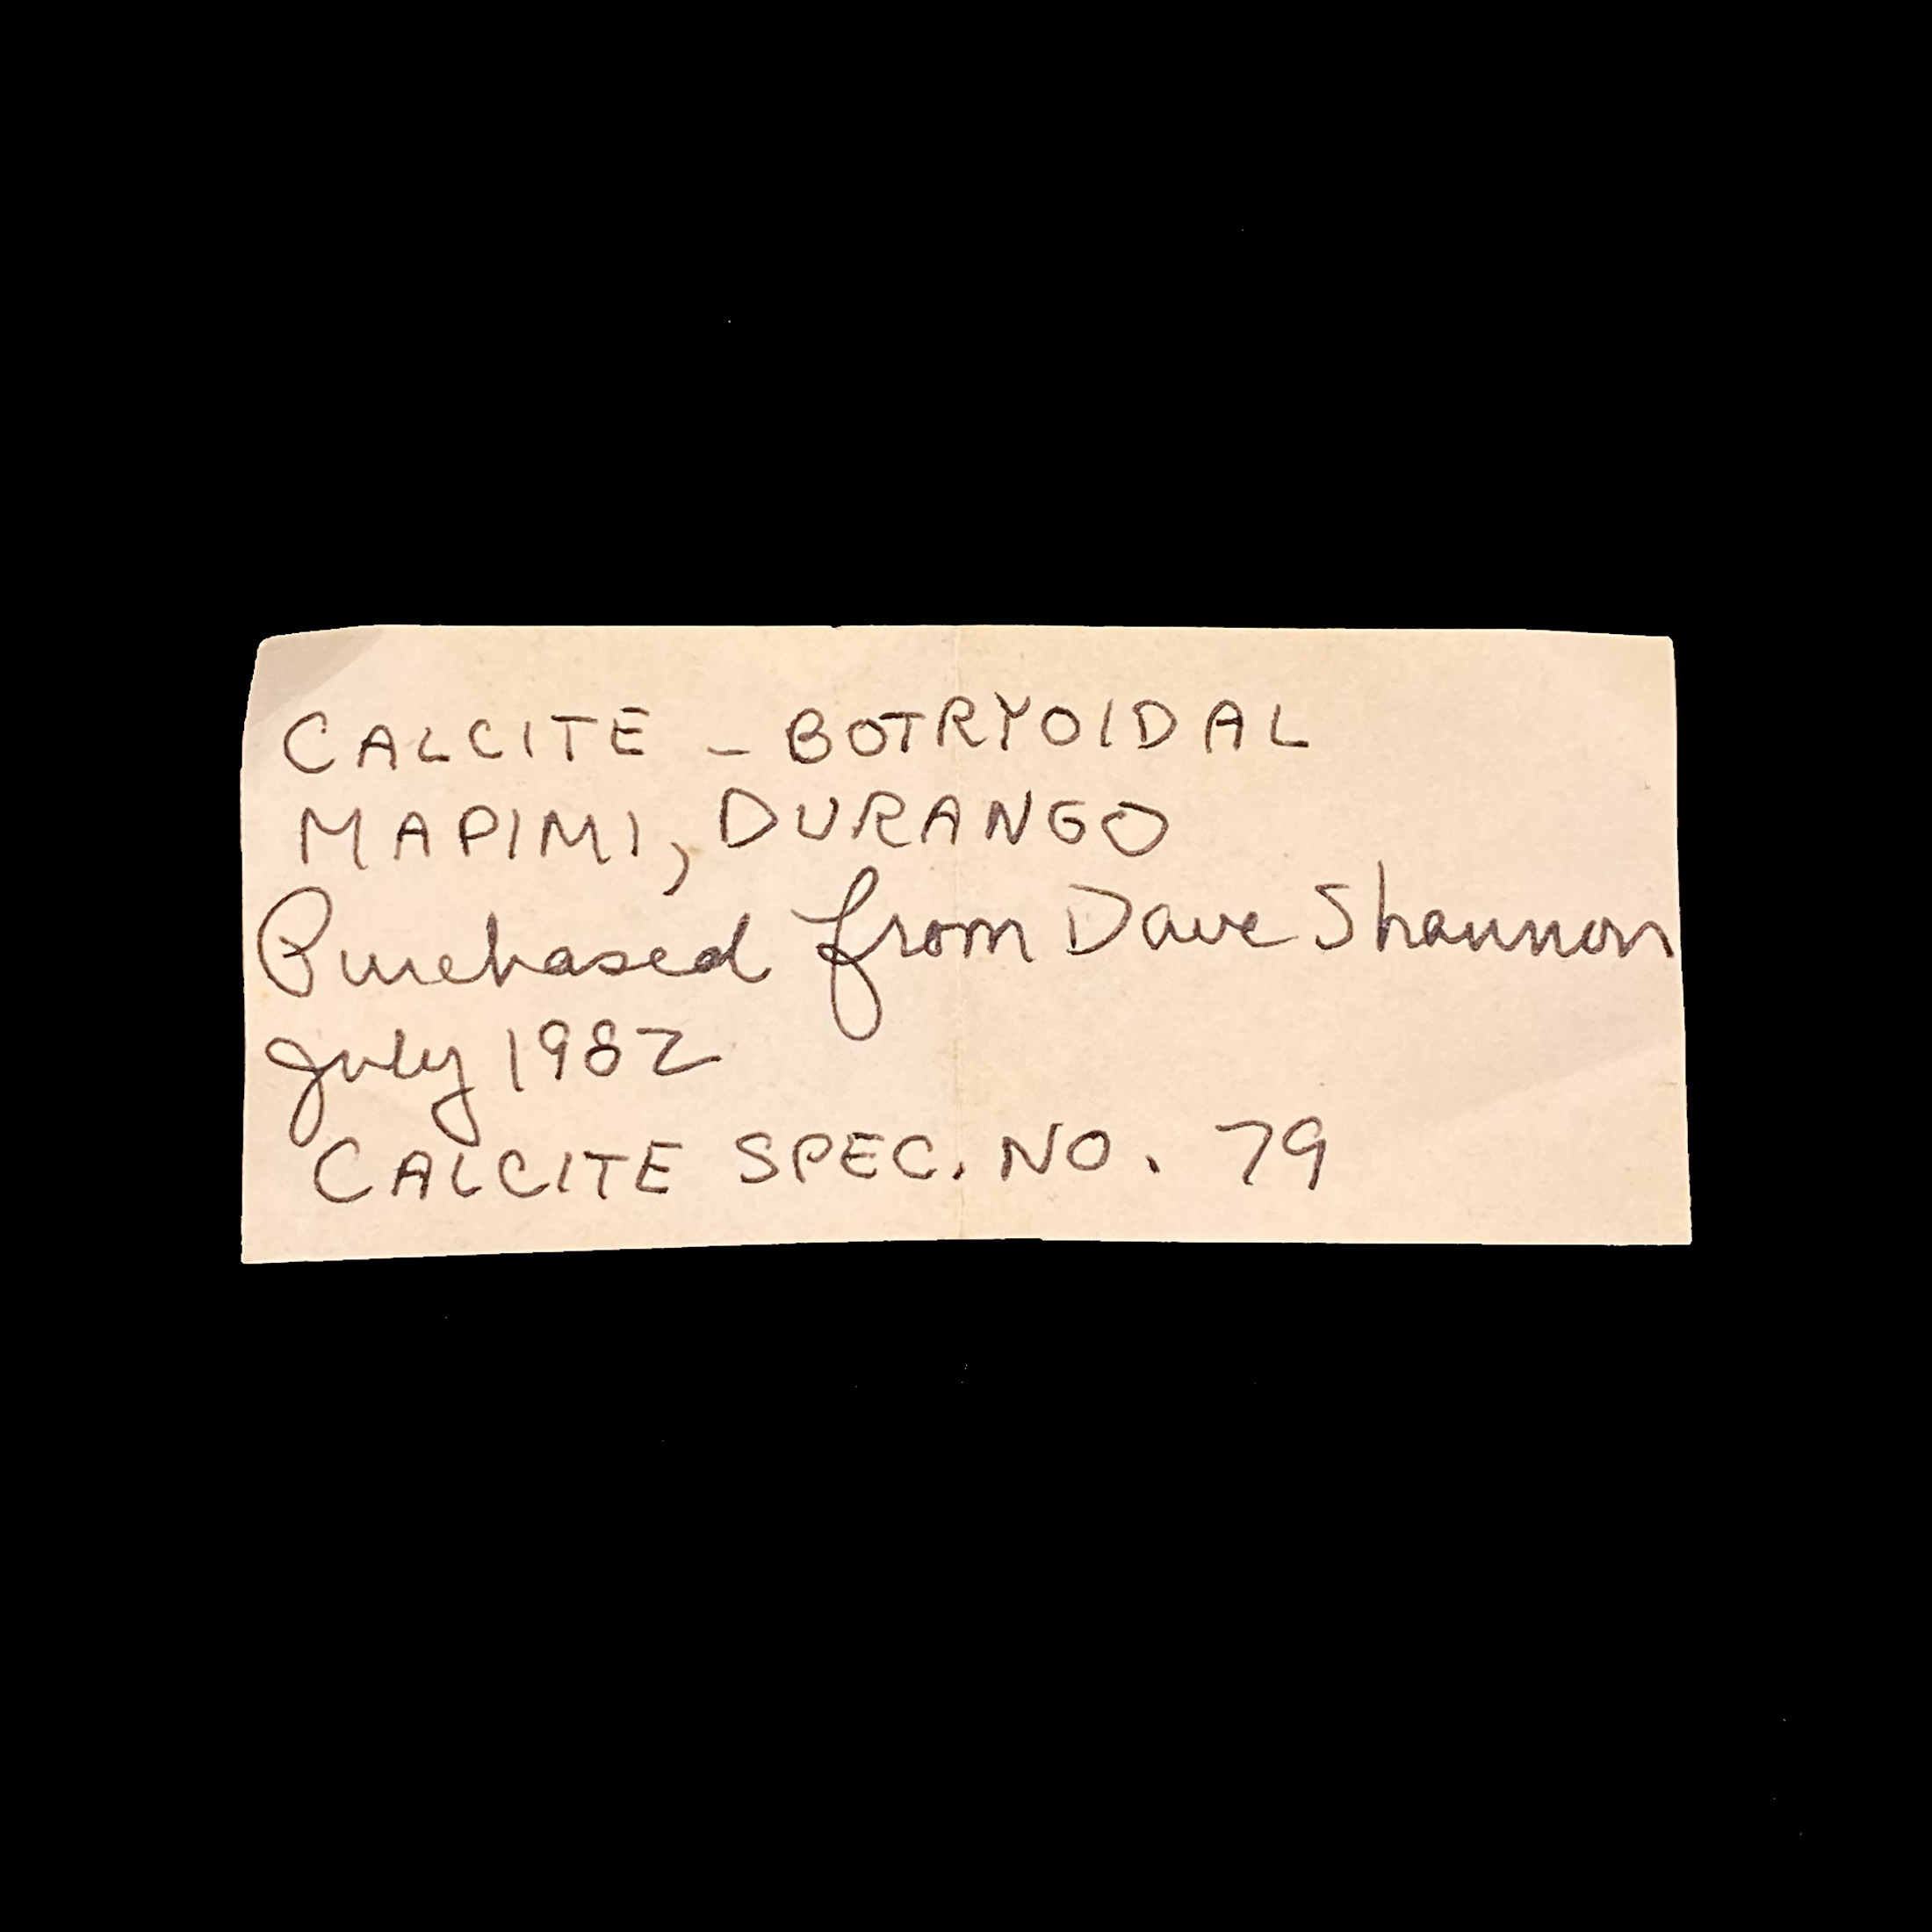 CALCITE - BOTRYOIDAL
MAPIMI, DURANGO
Purchased from Dave Shannon
July 1982
CALCITE SPEC. NO. 79